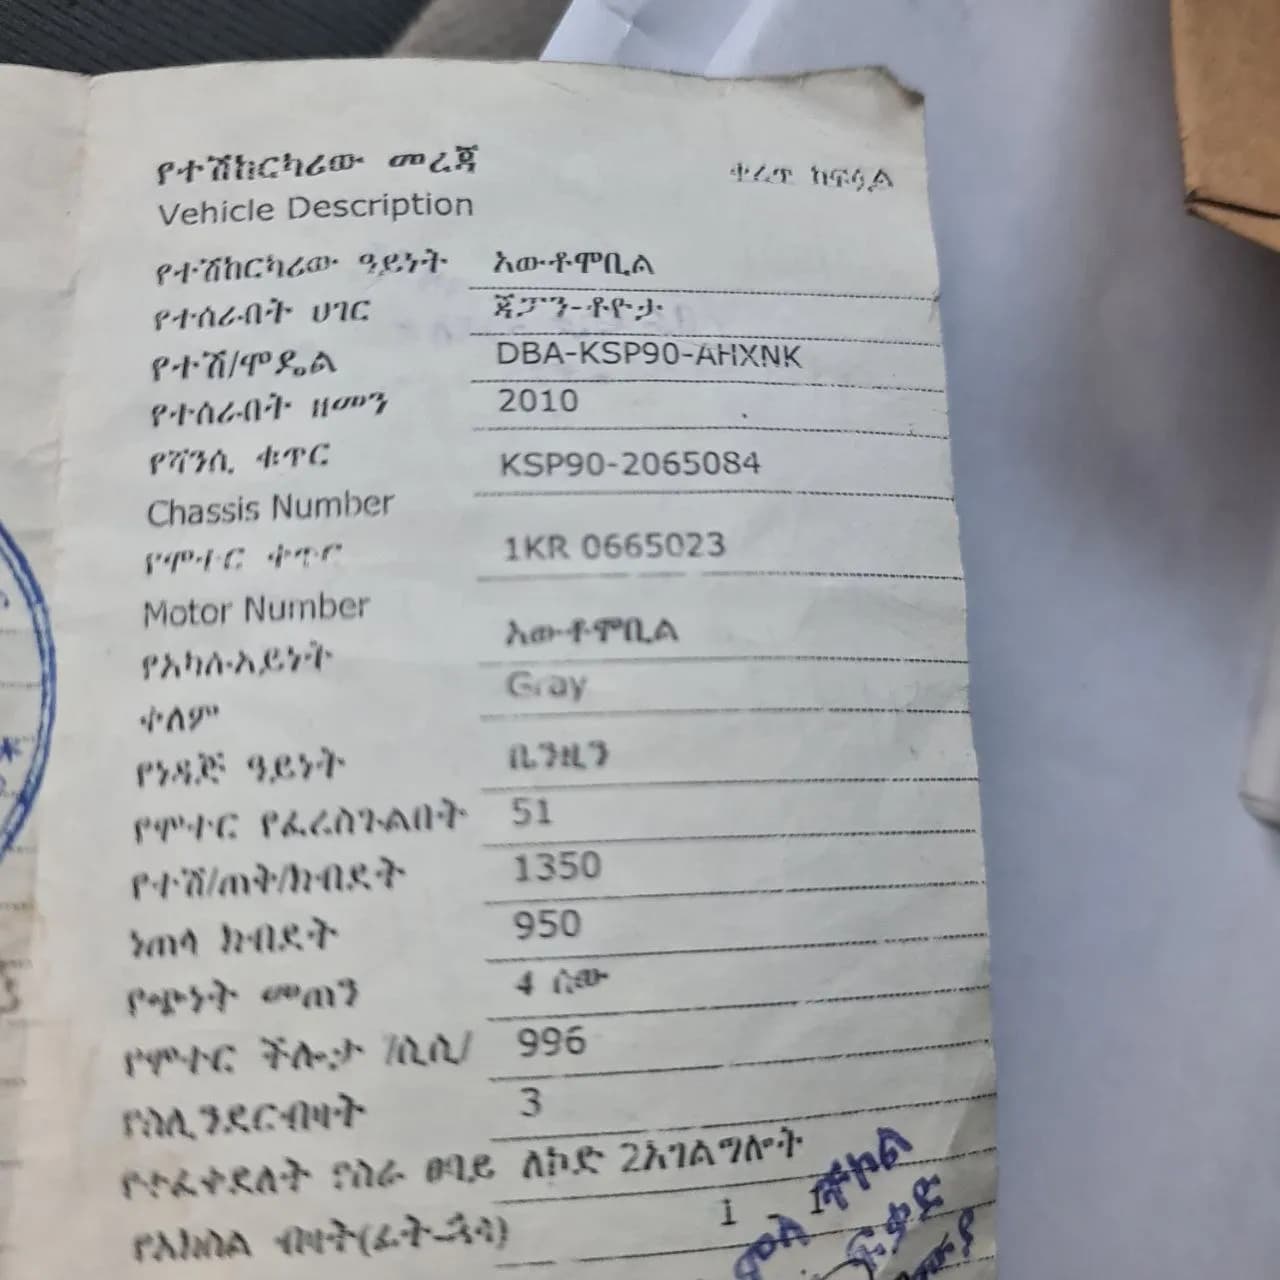 የተሽከርካሪው መረጃ ቀረጥ ከፍሏል
Vehicle Description
የተሽከርካሪው ዓይነት አውቶሞቢል
የተሰራበት ሀገር ጃፓን-ቶዮታ
የተሽ/ሞዴል DBA-KSP90-AHXNK
የተሰራበት ዘመን 2010
የሻንሲ ቁጥር KSP90-2065084
Chassis Number
የሞተር ቁጥር 1KR 0665023
Motor Number
የአካሉ አይነት አውቶሞቢል
ቀለም Gray
የነዳጅ ዓይነት ቤንዚን
የሞተር የፈረስጉልበት 51
የተሽ/ጠቅ/ክብደት 1350
ነጠላ ክብደት 950
የጭነት መጠን 4 ሰው
የሞተር ችሎታ /ሲሲ/ 996
የሲሊንደር ብዛት 3
የተፈቀደለት የስራ ፀባይ ለኮድ 2አገልግሎት
የአክሰል ብዛት(ፊት-ኋላ) 1 - 1